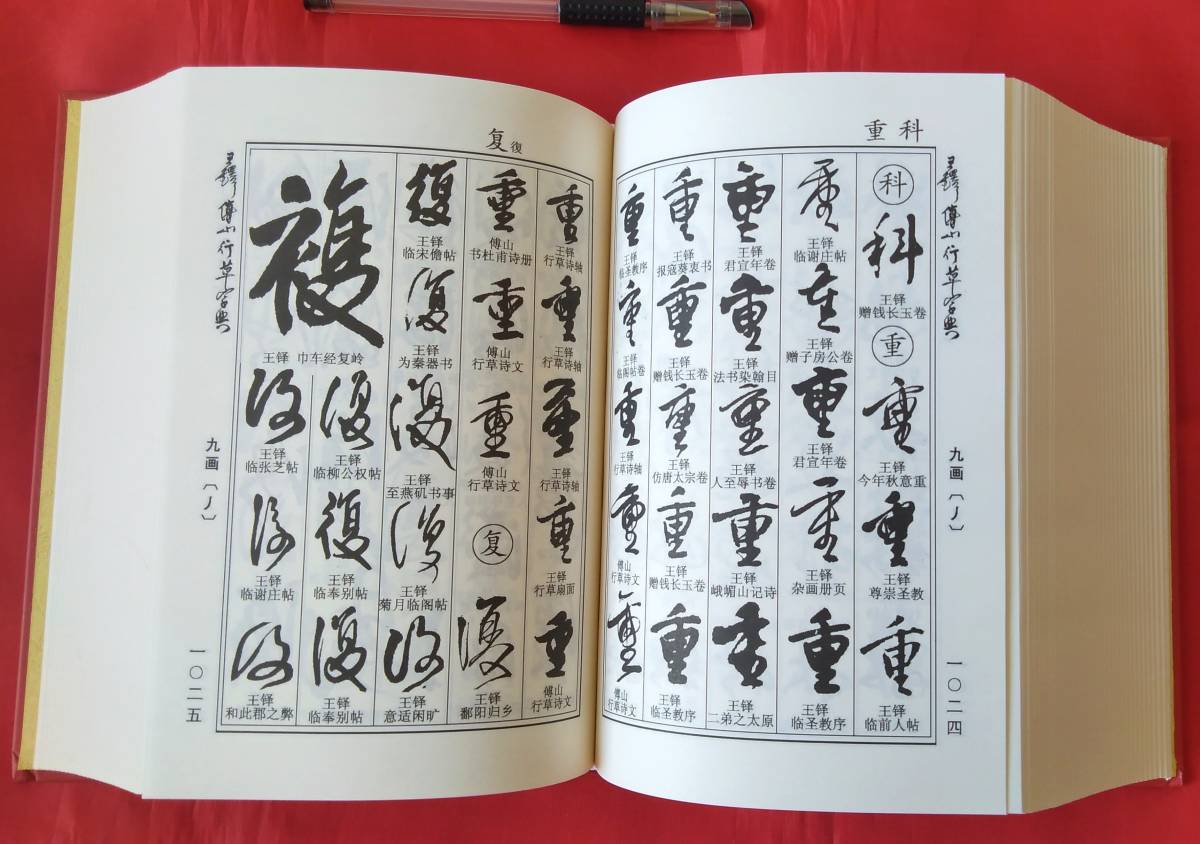 科 重
王铎傅山行草字典
九画〔丿〕
一〇二四
科
科
王铎
赠钱长玉卷
重
重
王铎
今年秋意重
重
王铎
尊崇圣教
重
王铎
临前人帖
重
王铎
临谢庄帖
重
王铎
赠子房公卷
重
王铎
君宣年卷
重
王铎
杂画册页
重
王铎
临圣教序
重
王铎
君宣年卷
重
王铎
法书染翰目
重
王铎
人至辱书卷
重
王铎
峨嵋山记诗
重
王铎
二弟之太原
重
王铎
报寇葵衷书
重
王铎
赠钱长玉卷
重
王铎
仿唐太宗卷
重
王铎
赠钱长玉卷
重
王铎
临圣教序
重
王铎
临圣教序
重
王铎
临阁帖卷
重
王铎
行草诗轴
重
傅山
行草诗文
重
傅山
行草诗文
复 復
王铎傅山行草字典
九画〔丿〕
一〇二五
重
王铎
行草诗轴
重
王铎
行草诗轴
重
王铎
行草诗轴
重
王铎
行草扇面
重
傅山
行草诗文
重
傅山
书杜甫诗册
重
傅山
行草诗文
重
傅山
行草诗文
复
復
王铎
鄱阳归乡
復
王铎
临宋儋帖
復
王铎
为秦器书
復
王铎
至燕矶书事
復
王铎
菊月临阁帖
復
王铎
意适闲旷
復
王铎 巾车经复岭
復
王铎
临柳公权帖
復
王铎
临奉别帖
復
王铎
临奉别帖
復
王铎
临张芝帖
復
王铎
临谢庄帖
復
王铎
和此郡之弊